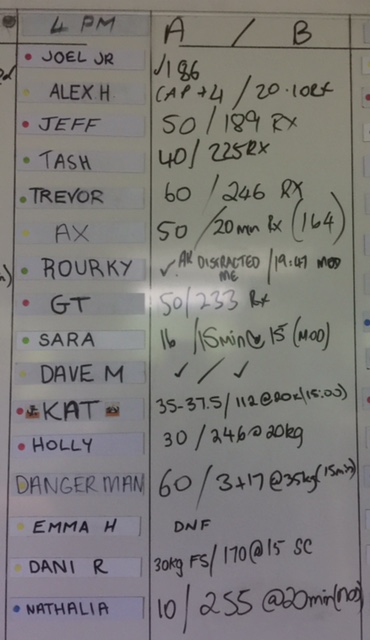 4 PM A / B
JOEL JR √186
ALEX.H. CAP +4 / 20.10RX
JEFF 50 / 189 RX
TASH 40 / 225RX
TREVOR 60 / 246 RX
AX 50 / 20min Rx (164)
ROURKY ✓ AK DISTRACTED ME / 19:47 MOD
GT 50/233 Rx
SARA 16 / 15min@15 (MOD)
DAVE M ✓ / ✓
KAT 35-37.5 / 112@ (15:00)
HOLLY 30 / 246@20kg
DANGERMAN 60 / 3+17@35kg (15min)
EMMA H DNF
DANI R 30kg FS / 170@15 SC
NATHALIA 10 / 255 @20min(MOD)